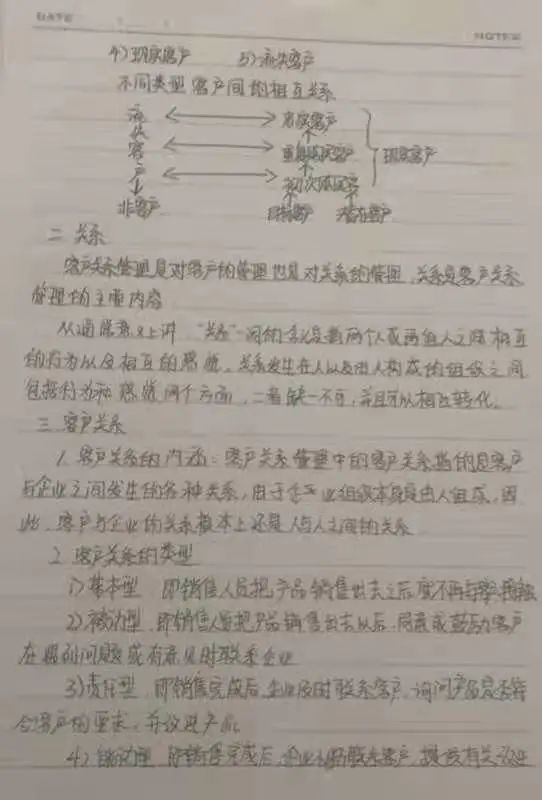 4) 现实客户 5) 流失客户
不同类型客户间的相互关系
流 忠实客户
失 重复购买客户
客 现实客户
户 初次购买客户
非客户 目标客户 潜在客户
二 关系
客户关系管理是对客户的管理也是对关系的管理,关系是客户关系
管理的主要内容
从通常意义上讲,“关系”一词的含义是指两个人或两组人之间相互
的行为以及相互的感觉。关系发生在人以及由人构成的组织之间
包括行为和感觉两个方面,二者缺一不可,并且可以相互转化。
三 客户关系
1. 客户关系的内涵:客户关系管理中的客户关系指的是客户
与企业之间发生的各种关系,由于企业组织本身是由人组成,因
此,客户与企业的关系根本上还是人与人之间的关系
2. 客户关系的类型
1) 基本型 即销售人员把产品销售出去之后就不再与客户接触
2) 被动型,即销售人员把产品销售出去以后,同意或鼓励客户
在遇到问题或有意见时联系企业
3) 责任型,即销售完成后,企业及时联系客户,询问产品是否符
合客户的要求,并改进产品
4) 能动型 即销售完成后,企业不断联系客户,提供有关改进